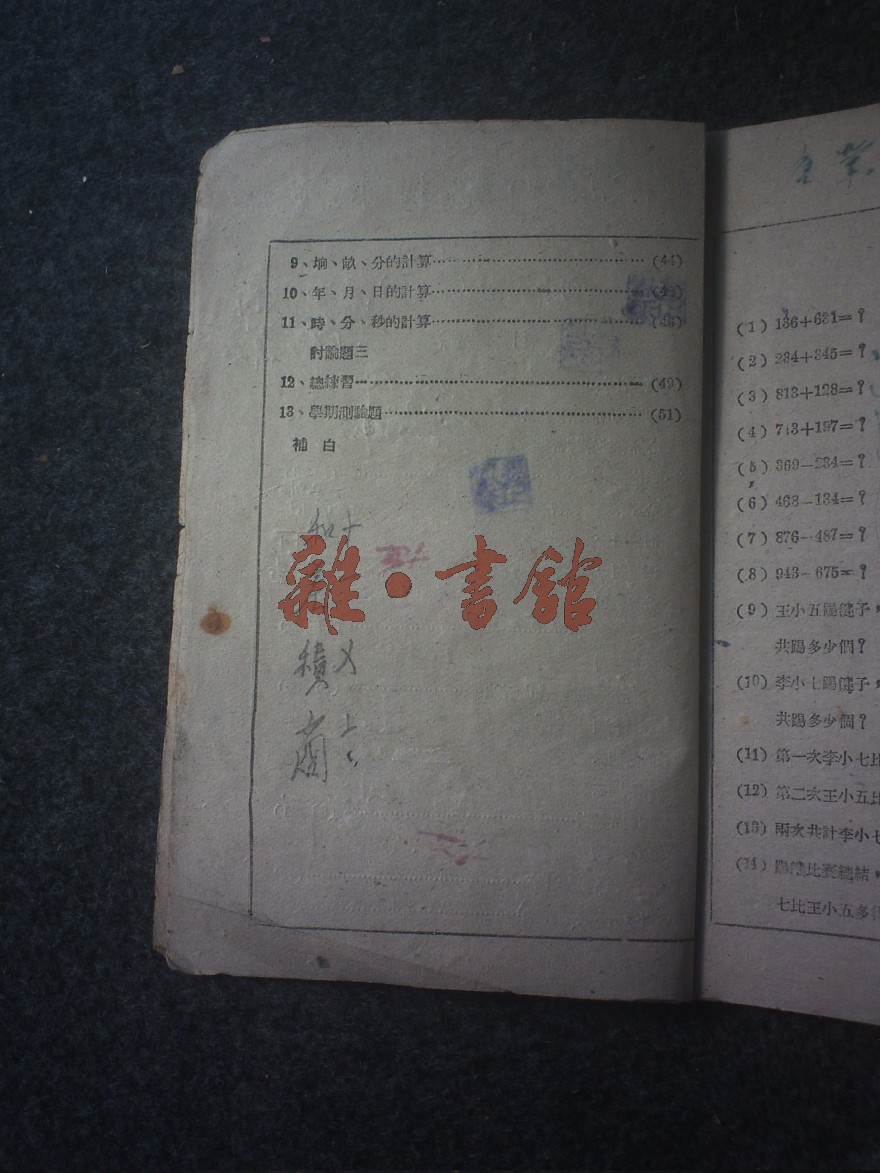 9、垧、畝、分的計算…………………………(44)
10、年、月、日的計算…………………………
11、時、分、秒的計算…………………………
討論題三
12、總練習…………………………(49)
13、學期測驗題…………………………(51)
補白
和 +
雜·書館
積 ×
商 ÷
(1) 136+631=?
(2) 284+345=?
(3) 813+128=?
(4) 713+197=?
(5) 369-234=?
(6) 468-134=?
(7) 876-487=?
(8) 943-675=?
(9) 王小五踢毽子，
共踢多少個?
(10) 李小七踢毽子，
共踢多少個?
(11) 第一次李小七比
(12) 第二次王小五比
(13) 兩次共計李小七
(14) 踢毽比賽總結，
七比王小五多